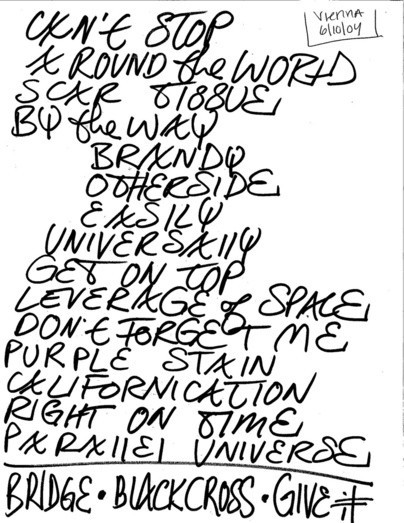 VIENNA
6/10/04
CAN'T STOP
AROUND the WORLD
SCAR TISSUE
BY the WAY
BRANDY
OTHERSIDE
EASILY
UNIVERSALLY
GET ON TOP
LEVERAGE of SPACE
DON'T FORGET ME
PURPLE STAIN
CALIFORNICATION
RIGHT ON TIME
PARALLEL UNIVERSE
BRIDGE • BLACKCROSS • GIVE it